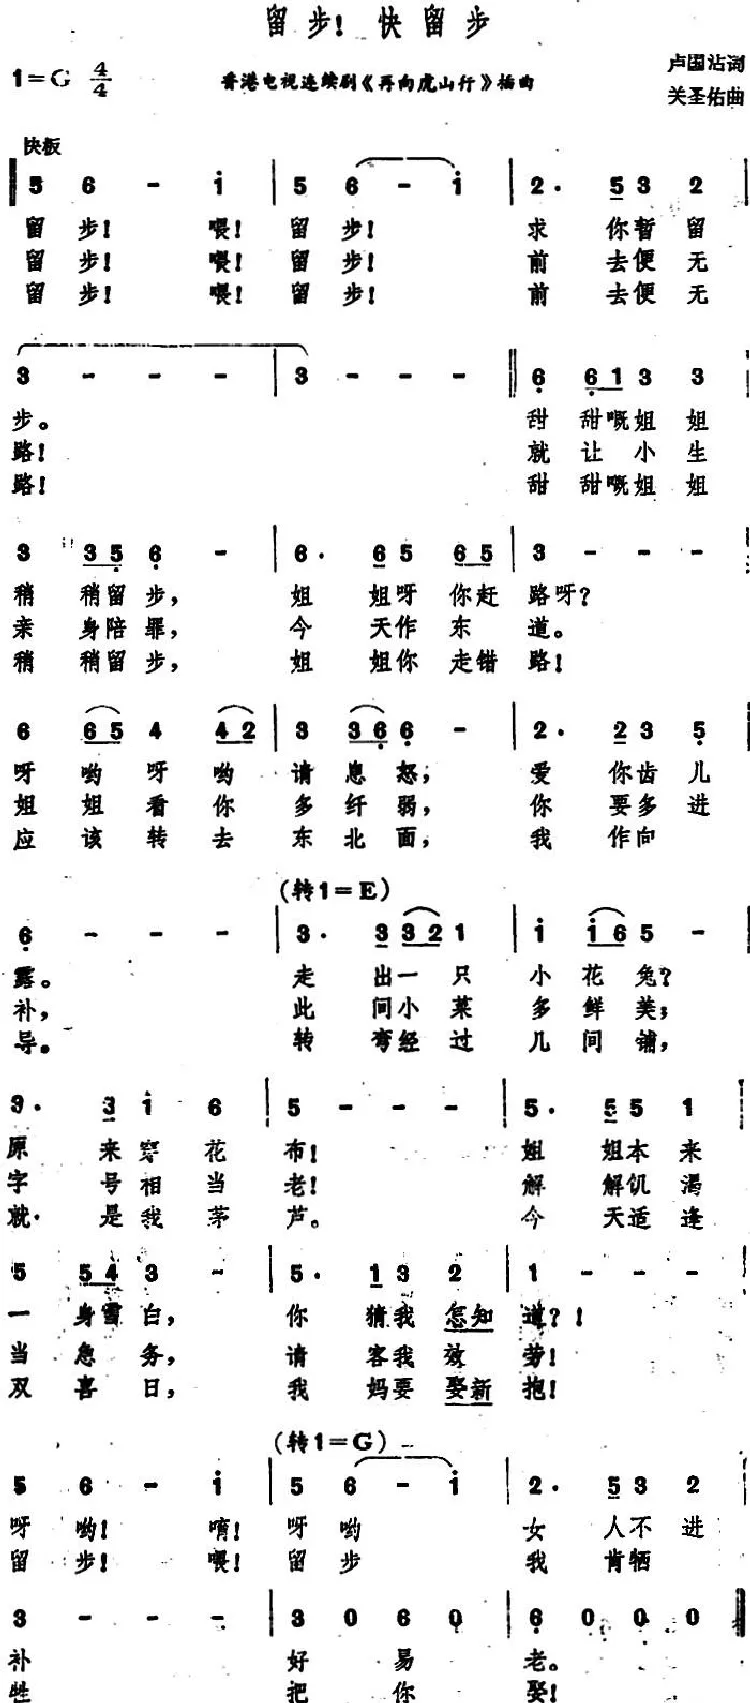 留步! 快留步
1=G 4/4
香港电视连续剧《再向虎山行》插曲
卢国沾词
关圣佑曲
快板
5 6 - i | 5 6 - i | 2. 5 3 2
留 步! 喂! 留 步! 求 你暂 留
留 步! 喂! 留 步! 前 去便 无
留 步! 喂! 留 步! 前 去便 无
3 - - - | 3 - - - ‖ 6 61 3 3
步。 甜 甜嘅姐 姐
路! 就 让 小 生
路! 甜 甜嘅姐 姐
3 35 6 - | 6. 6 5 65 | 3 - - -
稍 稍留 步, 姐 姐呀 你赶 路呀?
亲 身陪 罪, 今 天作 东 道。
稍 稍留 步, 姐 姐你 走错 路!
6 65 4 42 | 3 36 6 - | 2. 2 3 5
呀 哟 呀 哟 请 息 怒, 爱 你齿 儿
姐 姐 看 你 多 纤 弱, 你 要多 进
应 该 转 去 东 北 面, 我 作向
(转1=E)
6 - - - | 3. 3 32 1 | i i6 5 -
露。 走 出一 只 小 花 兔?
补, 此 间小 菜 多 鲜 美;
导。 转 弯经 过 几 间 铺,
3. 3 i 6 | 5 - - - | 5. 5 5 1
原 来穿 花 布! 姐 姐本 来
字 号相 当 老! 解 解饥 渴
就 是我 茅 芦。 今 天适 逢
5 54 3 - | 5. 1 3 2 | 1 - - -
一 身雪 白, 你 猜我 怎知 道?!
当 急 务, 请 客我 效 劳!
双 喜 日, 我 妈要 娶新 抱!
(转1=G)
5 6 - i | 5 6 - i | 2. 5 3 2
呀 哟! 唷! 呀 哟 女 人不 进
留 步! 喂! 留 步 我 肯牺
3 - - - | 3 0 6 0 | 6 0 0 0 ‖
补 好 易 老。
牲 把 你 娶!